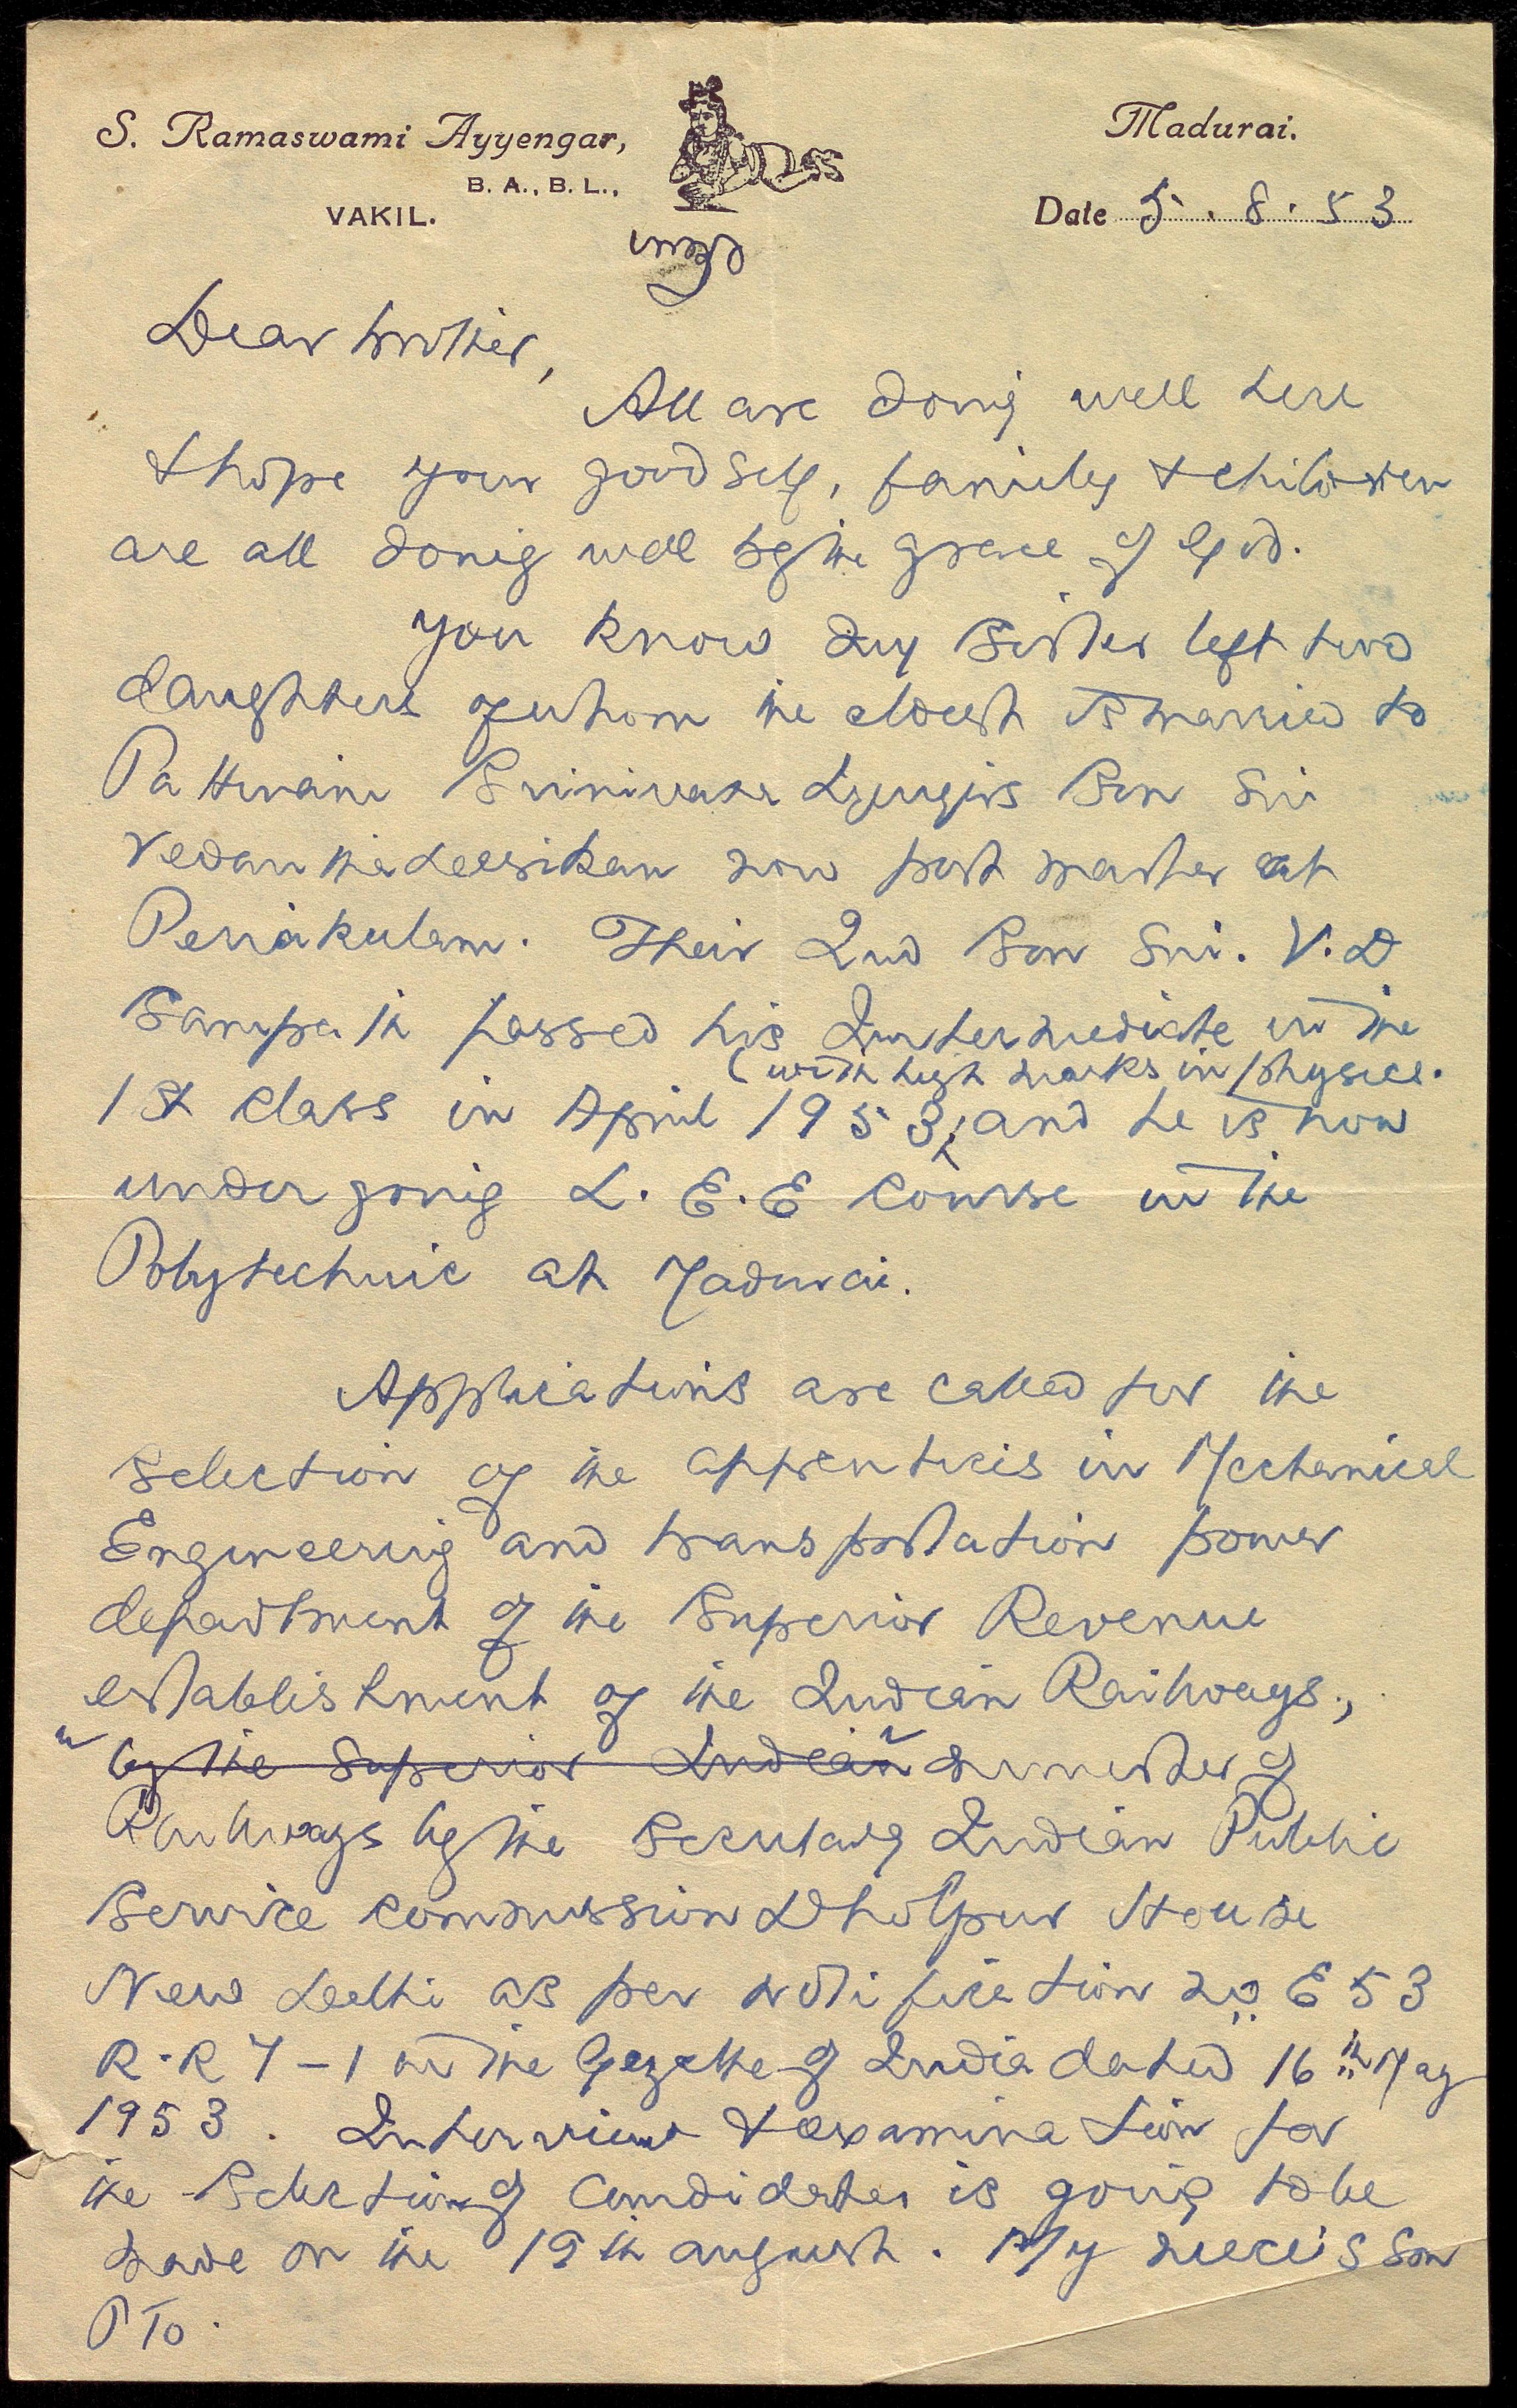 S. Ramaswami Ayyengar,
B. A., B. L.,
VAKIL.
Madurai.
Date 5 . 8 . 53
Dear brother,
All are doing well here
& hope your goodself, family & children
are all doing well by the grace of God.
You know my sister left two
daughters of whom the eldest is married to
Srinivasa Iyengirs Son Sri
Vedanthadesikan now post master at
Periakulam. Their 2nd Son Sri. V.D
Sampath passed his Intermediate in the
(with high marks in physics.
1st class in April 1953, and he is now
undergoing L. E. E Course in the
Polytechnic at Madurai.
Applications are called for the
selection of the apprenticis in Mechanical
Engineering and transportation power
department of the Superior Revenue
establishment of the Indian Railways.,
by the Superior Indian minister of
Railways by the Secretary Indian Public
Service Commission Dholpur House
New Delhi as per notification no E 53
R.R 7-1 in the Gazette of India dated 16th May
1953. Interview & examination for
the Selection of Candidates is going to be
made on the 19th august. My neece's son
PTO.